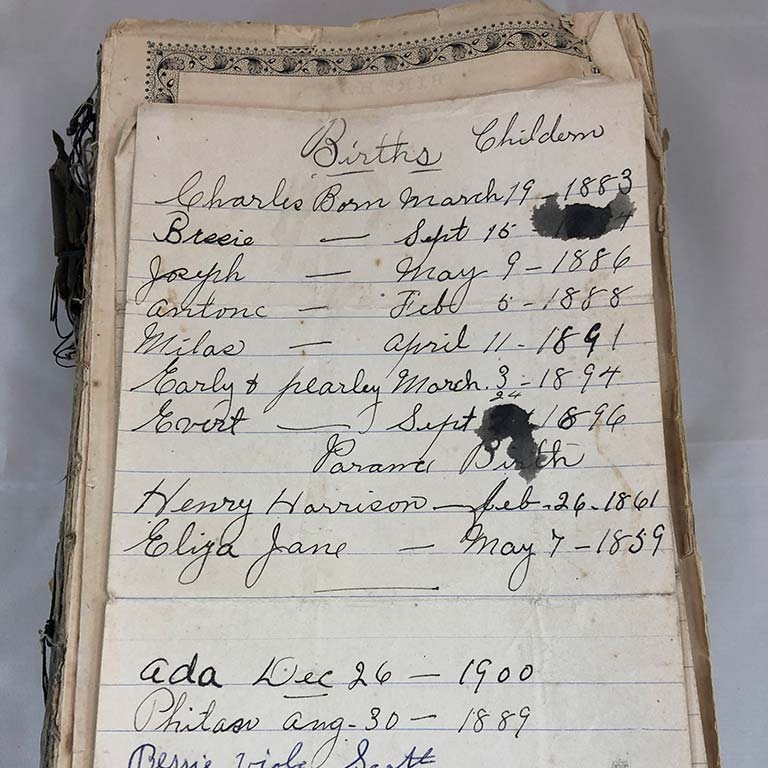 Births Childern
Charles Born March 19 - 1883
Bessie — Sept 15
Joseph — May 9 - 1886
antone — Feb 5 - 1888
Milas — april 11 - 1891
Early & pearley March. 3 - 1894
24
Evert — Sept 1896
Birth
Henry Harrison — feb - 26 - 1861
Eliza Jane — May 7 - 1859
ada Dec 26 — 1900
aug - 30 — 1889
Bessie viola Scott